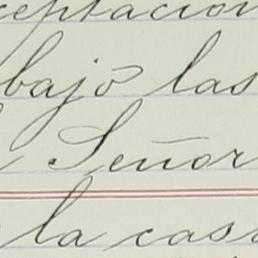 ceptacion
bajo las
Señor
la casa